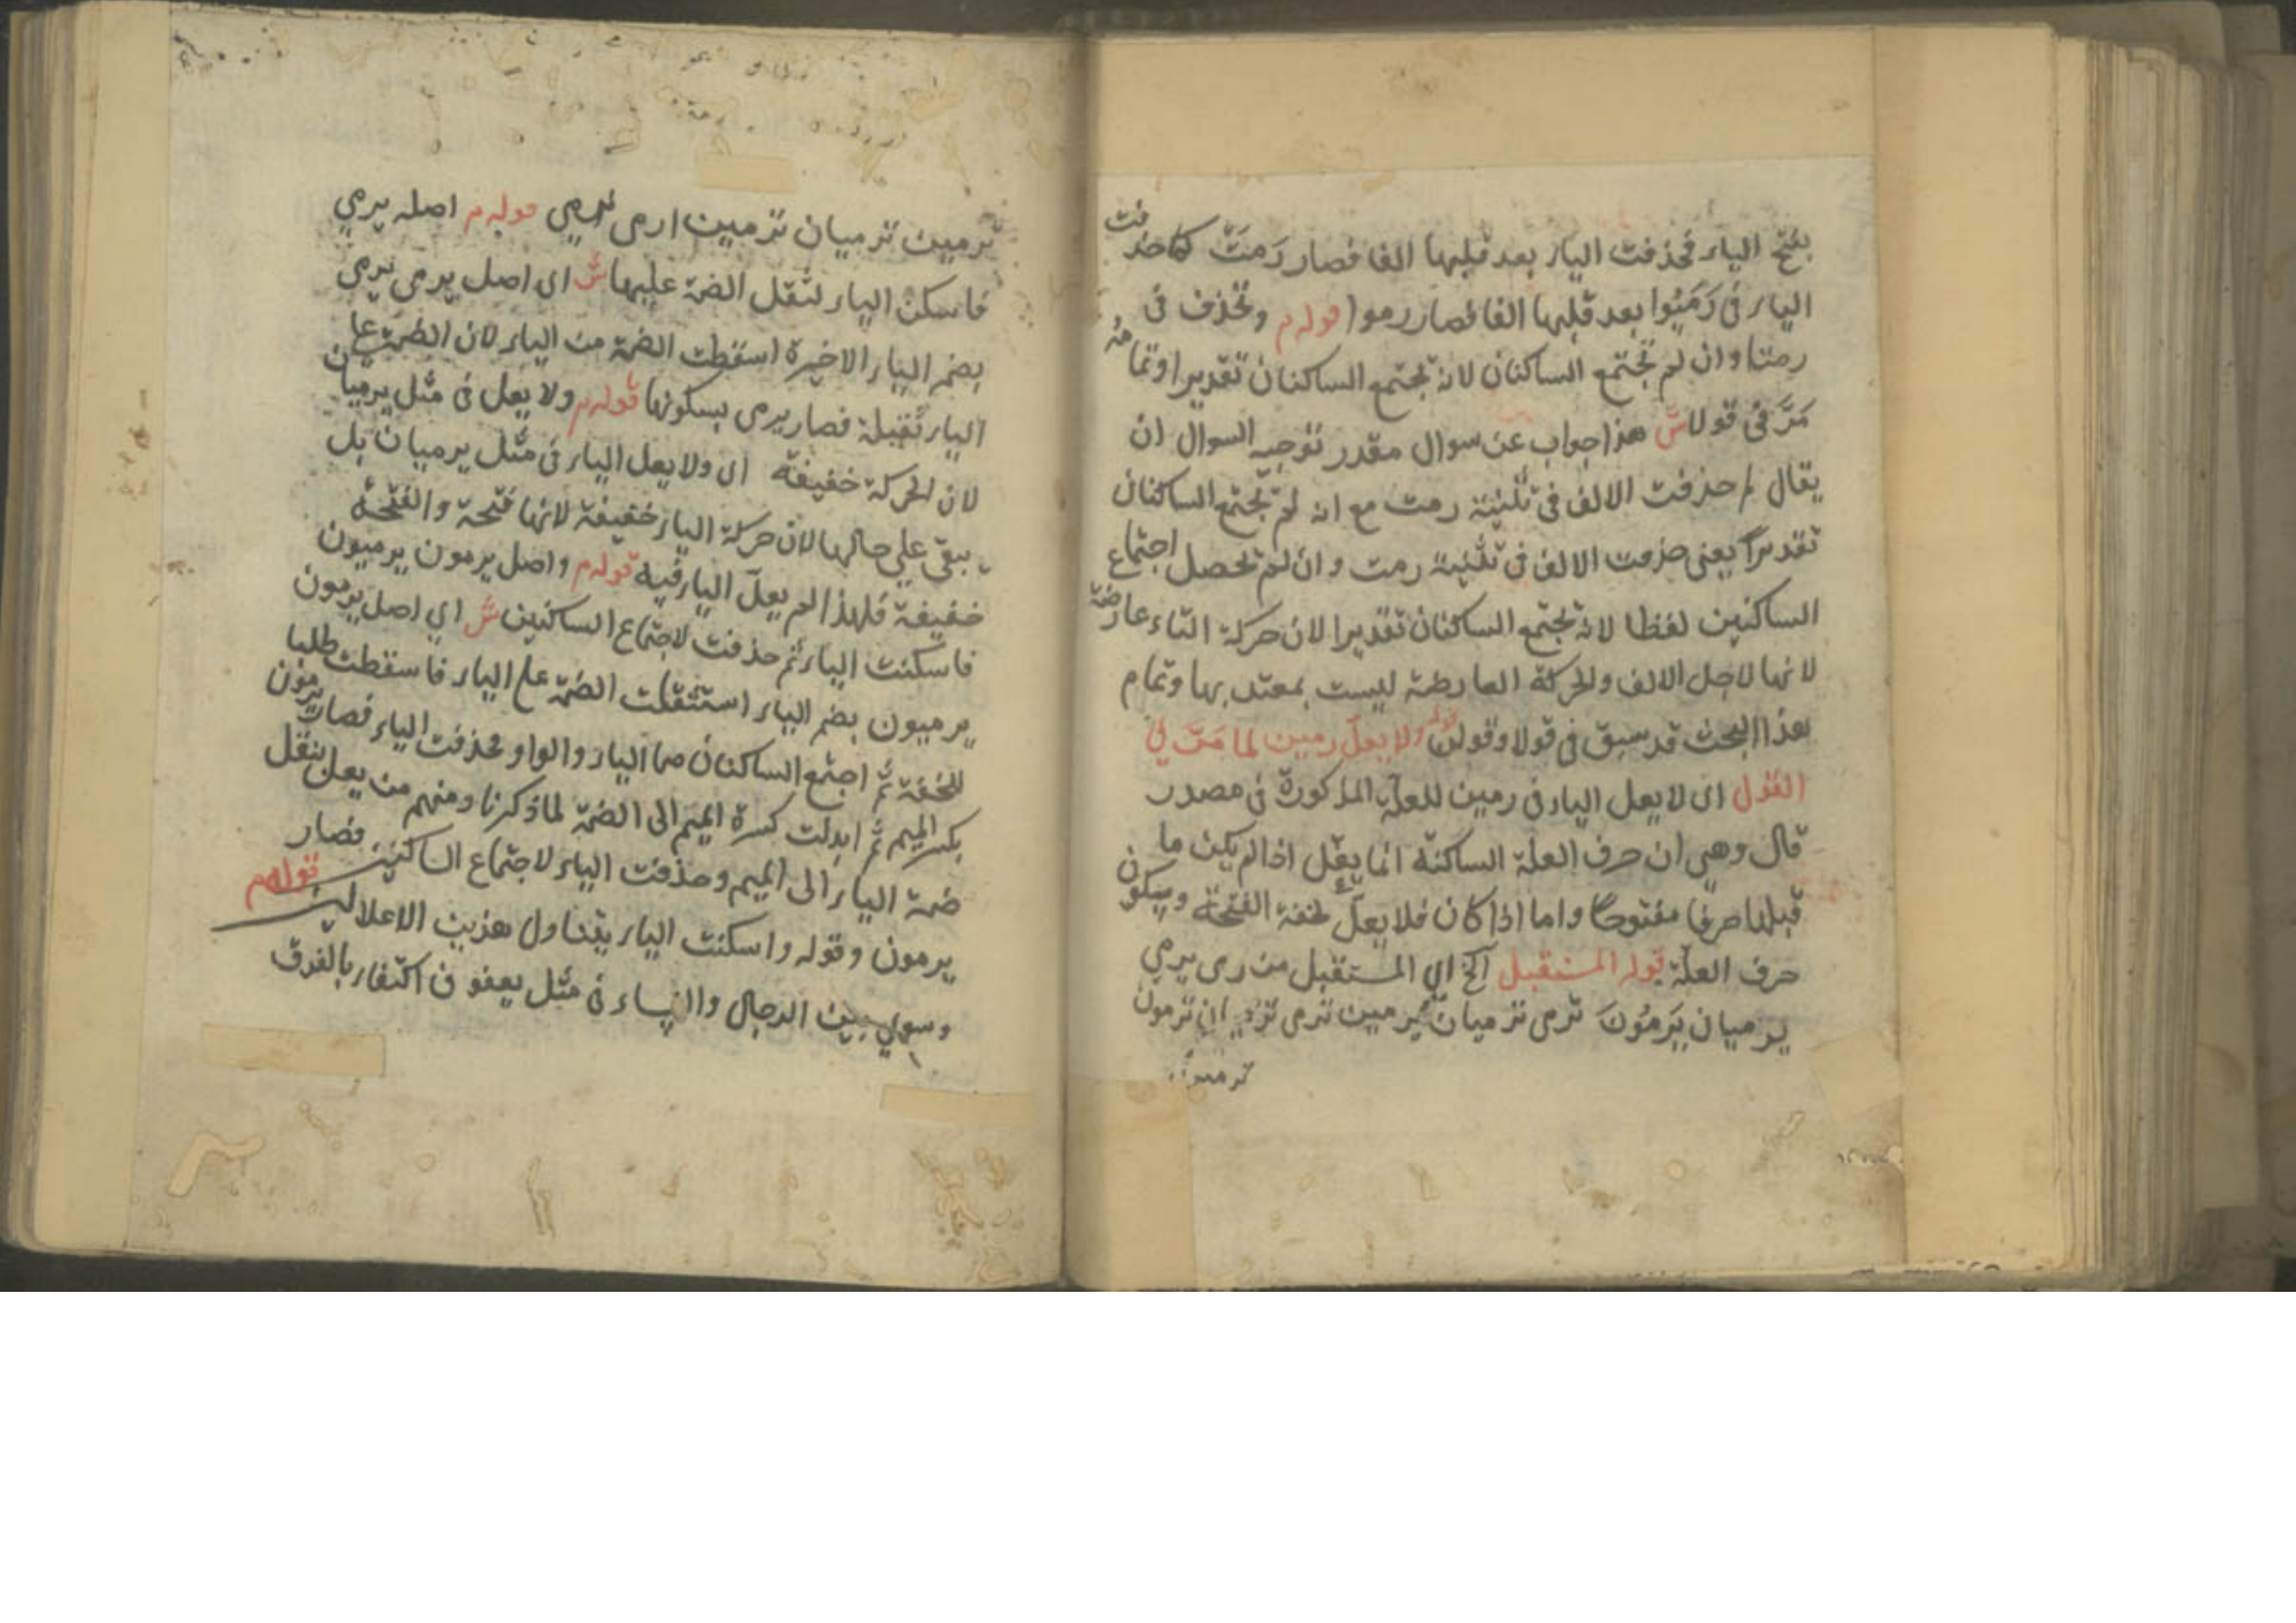 بفتح الياء فحذفت الياء بعد قلبها الفا فصار رَمَتْ كما حذفت
الياء فى رَمَيُوا بعد قلبها الفا فصار رموا قوله م وتحذف فى
رمتا وان لم تجتمع الساكنان لانه تجتمع الساكنان تقديرا وتمامه
مَرَّ فى قولا ش هذا جواب عن سوال مقدر توجيه السوال ان
يقال لم حذفت الالف فى تثنية رمت مع انه لم تجتمع الساكنان
تقديرا يعنى حذفت الالف فى تثنية رمت وان لم تحصل اجتماع
الساكنين لفظا لانه تجتمع الساكنان تقديرا لان حركة التاء عارضة
لانها لاجل الالف والحركة العارضة ليست بمعتد بها وتمام
هذا البحث قد سبق فى قولا وقولن قوله ولا يعلّ رمين لما مَرَّ فى
القول اى لا يعل الياء فى رمين للعلة المذكورة فى مصدر
قال وهى ان حرف العلة الساكنة انما يعّل اذا لم يكن ما
قبلها حرفا مفتوحا واما اذا كان فلا يعلّ لخفة الفتحة وسكون
حرف العلة قوله المستقبل آلخ اى المستقبل من رمى يرمي
يرميان يَرمُونَ ترمى ترميان يرمين ترمى ترميان ترمون
ترمين
ترمين ترميان ترمين ارمى نرمي قوله م اصله يرمي
فاسكن الياء لثقل الضمة عليها ش اى اصل يرمى يرمى
بضم الياء الاخيرة اسقطت الضمة من الياء لان الضمة على
الياء ثقيلة فصار يرمى بسكونها قوله م ولا يعل فى مثل يرميان
لان الحركة خفيفة اى ولا يعل الياء فى مثل يرميان بل
يبقى على حالها لان حركة الياء خفيفة لانها فتحة والفتحة
خفيفة فلهذا لم يعلّ الياء فيه قوله م واصل يرمون يرميون
فاسكنت الياء ثم حذفت لاجتماع الساكنين ش اي اصل يرمون
يرميون بضم الياء استثقلت الضمة على الياء فاسقطت طلبا
للخفة ثم اجتمع الساكنان هما الياء والواو فحذفت الياء فصار يرمون
بكسر الميم ثم ابدلت كسرة الميم الى الضمة لما ذكرنا ومنهم من يعل بنقل
ضمة الياء الى الميم وحذفت الياء لاجتماع الساكنين فصار
يرمون وقوله واسكنت الياء يتناول هذين الاعلالين قوله م
وسوي بين الرجال والنساء فى مثل يعفون اكتفاء بالفرق